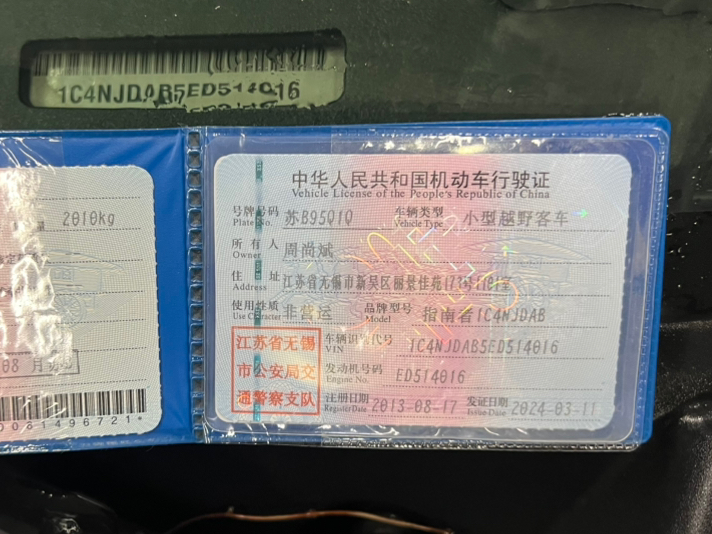 1C4NJDAB5ED514016
2010kg
08 月
0081496721
中华人民共和国机动车行驶证
Vehicle License of the People's Republic of China
号牌号码 苏B95Q1Q 车辆类型 小型越野客车
Plate No. Vehicle Type
所有人 周尚斌
Owner
住址 江苏省无锡市新吴区丽景佳苑
Address
使用性质 非营运 品牌型号 指南者1C4NJDAB
Use Character Model
江苏省无锡
市公安局交
通警察支队
车辆识别代号 1C4NJDAB5ED514016
VIN
发动机号码 ED514016
Engine No.
注册日期 2013-08-17 发证日期 2024-03-11
Register Date Issue Date